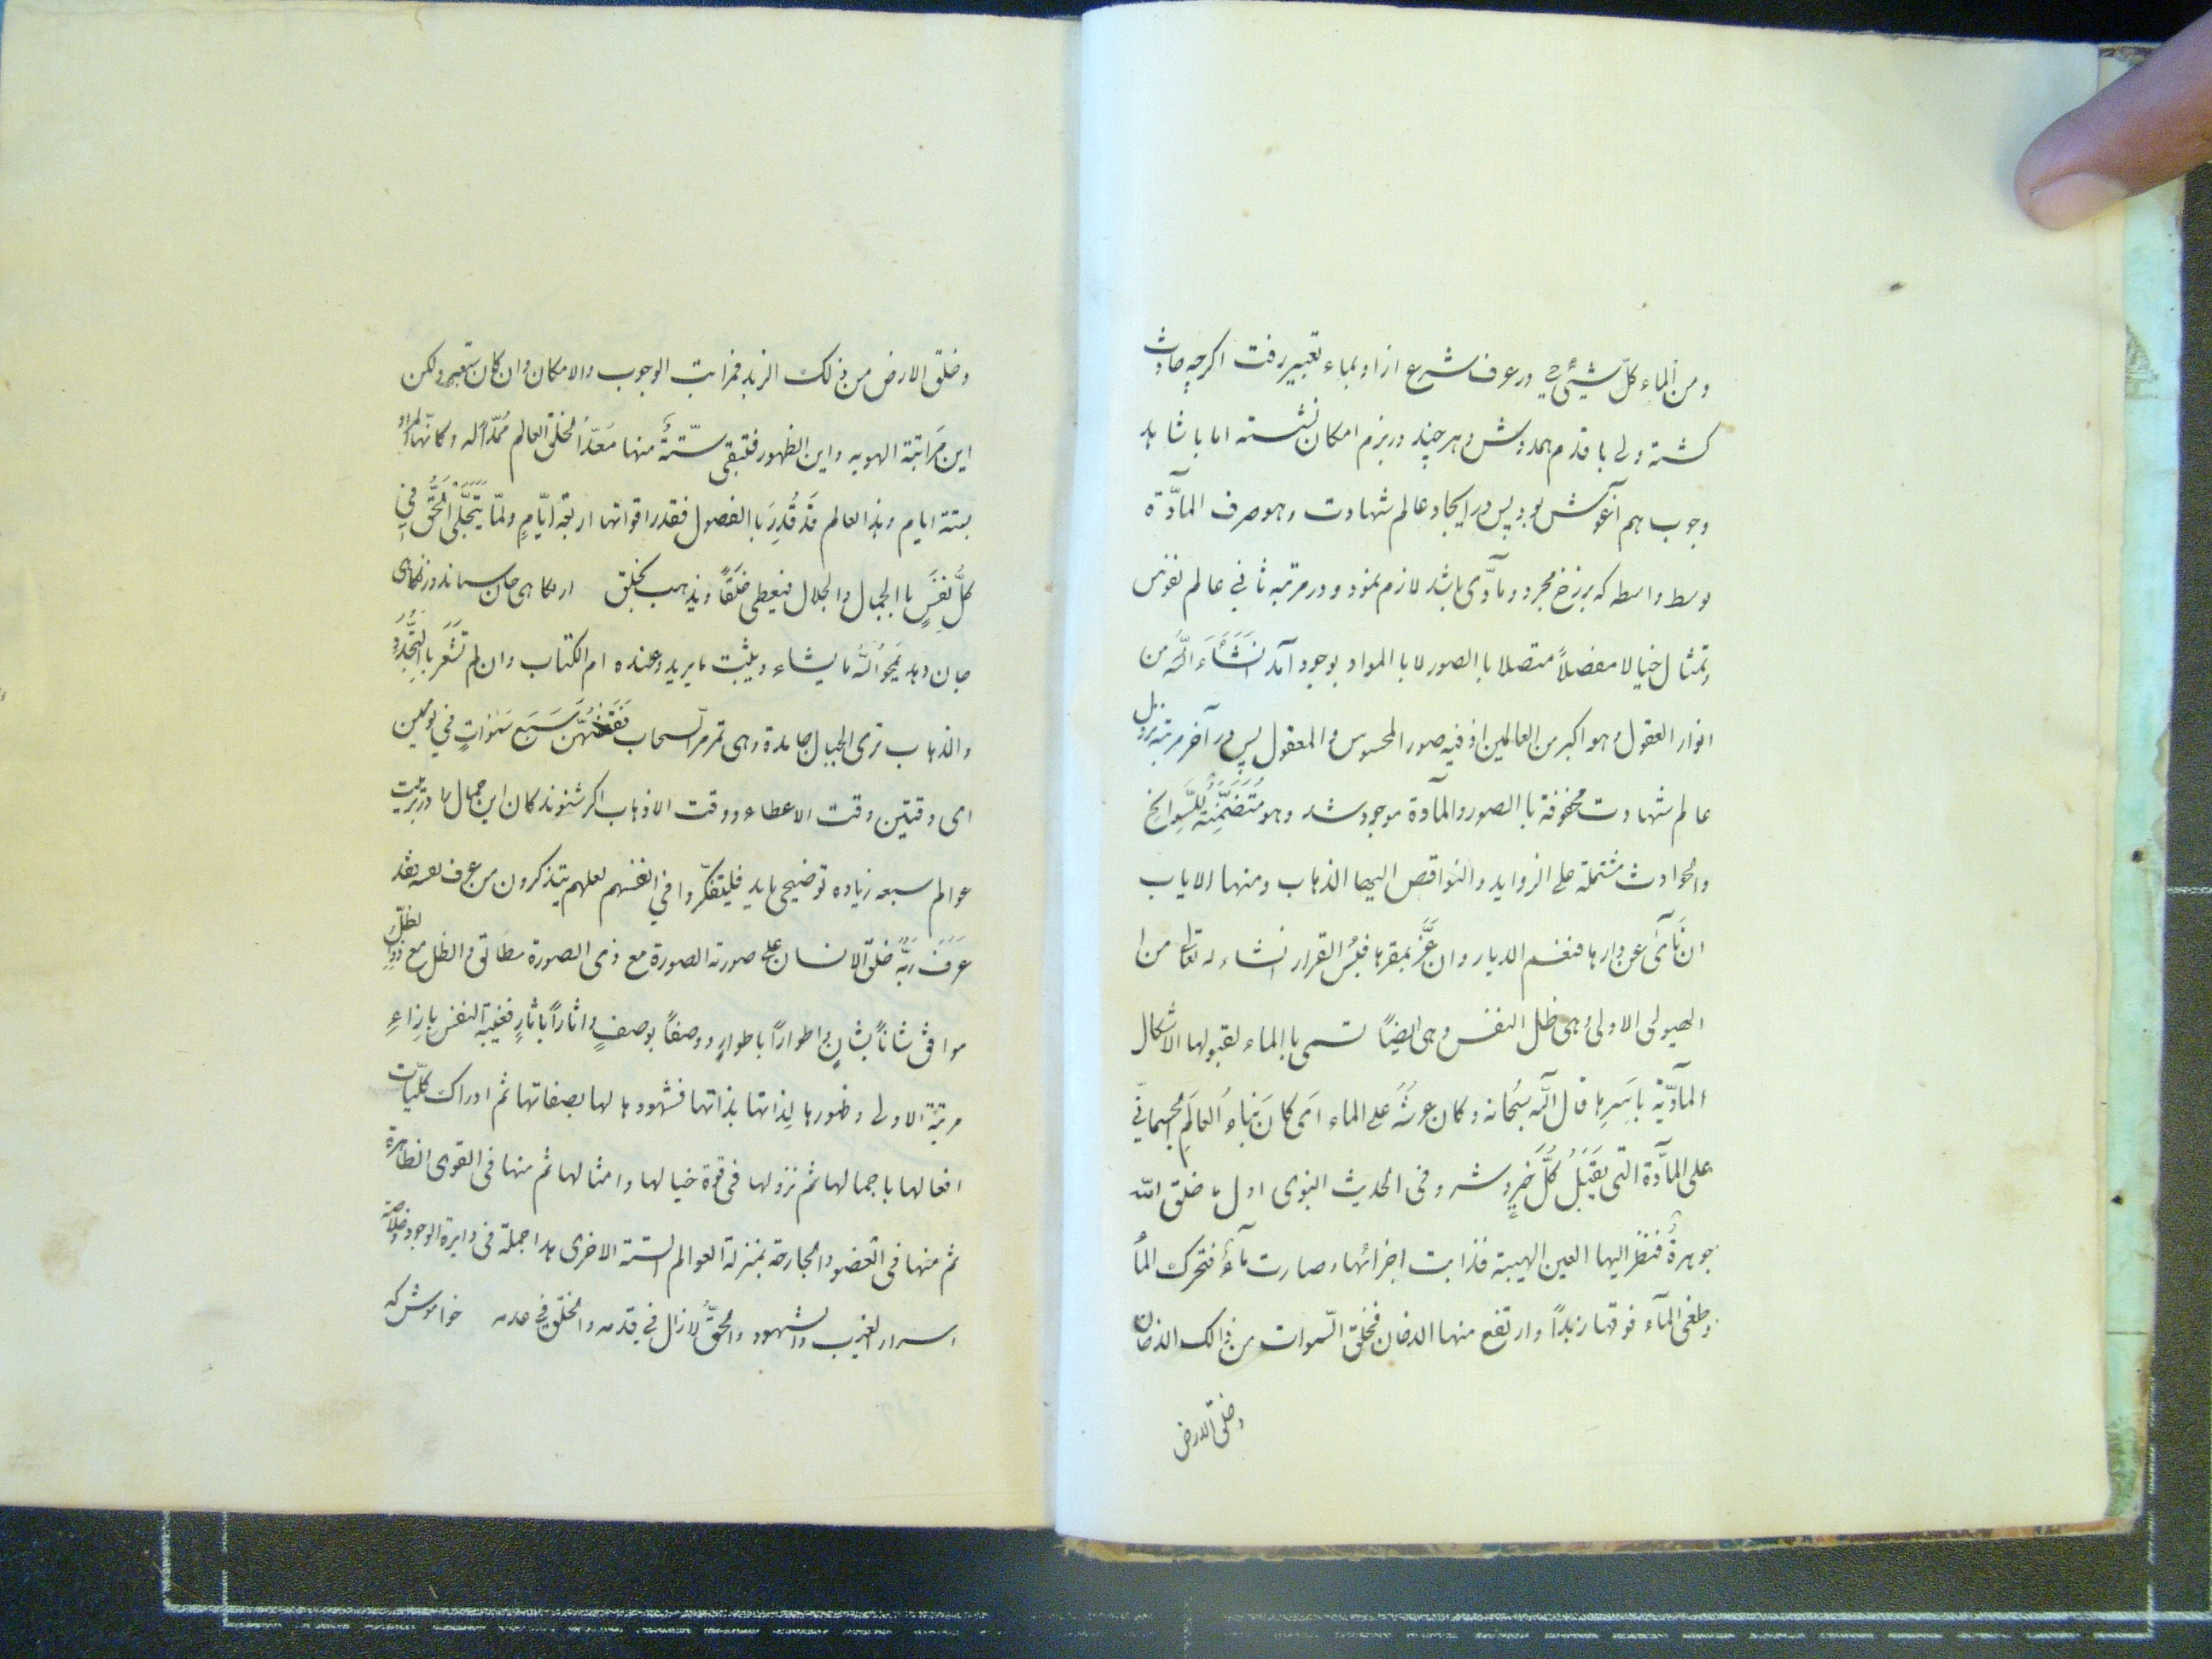 و من الماء کلّ شیئ حی در عرف شرع از او بماء تعبیر رفت اکرچه حادث
کشته ولی با قدم همدوش و هر چند در بزم امکان نشسته اما با شاهد
وجوب هم آغوش بود پس در ایجاد عالم شهادت و هو صرف المآدّة
توسط واسطه که برزخ مجرد و مآدّی باشد لازم نمود و در مرتبه ثانی عالم نفوس
و تمثال خیالا مفصلاً متصلا با الصور لا با المواد بوجود آمد انشَأءَ اللّه من
انوار العقول و هو اکبر من العالمین اذ فیه صور المحسوس و المعقول پس در آخر مرتبه نزول
عالم شهادت محفوفة با الصور و المآدة موجود شد و هو مُتَضَمِّنَة لِلسَّوانح
و الحوادث مشتملة علی الزواید و النواقص الیها الذهاب و منها الایاب
ان نَآی عن دارها فنعم الدیار و ان عَزَّ بمقرها فبئس القرار انشاء له تعالی من ا
الهیولی الاولی و هی ظل النفس و هی ایضاً تسمی با الماء لقبولها الاشکال
المآدّیّة باَسرِها قال اللّه سُبحانه و کان عرشُه علی الماء اَی کانَ بَناءُ العالَمِ الجسمانیّ
علی المآدّة التی یَقبَلُ کُلَّ خَیرٍ و شر و فی الحدیث النبوی اول ما خلق اللّه
جوهرةً فنظر الیها العین الهیبة فذابت اجزائها و صارت مآءً فتحرک الماءُ
و طغی المآء فوقها زبداً و ارتفع منها الدخان فخلق السّموات من ذالک الدخان
و خلق الارض
و خلق الارض من ذلک الزبد فمراتب الوجوب و الامکان و ان کان سبعة و لکن
این مَراتبة الهویه و این الظهور فتبقی ستّةً منها مَعدّاً لخلق العالم مُمدّاً له و کانّها المراد
بستة ایام و هذا العالم قَد قُدِرَ با الفصول فقدر اقواتها اربعة ایّامٍ و لمّا یَتَجَلَّی الحَقُّ فی
کلُّ نفسٍ با الجمال و الجلال فیعطی خلقاً و یذهب بخلق
جان دهد یَمحوُ اللّه ما یشاء و یثبت ما یرید و عنده ام الکتاب و ان لم تشعر با التَّجدُّدِ
و الذهاب تری الجبال جامدة و هی تمر مرّ السحاب فَقَضهُنَّ سَبعَ سَموَاتٍ فی یومین
ای وقتین وقت الاعطاء و وقت الاذهاب اکر شنوندکان این جمال را در تربیت
عوالم سبعه زیاده توضیحی باید فلیتفکّروا فی انفسهم لعلهم یتذکرون من عرف نفسه فقد
عَرَفَ رَبَّهُ خلق الانسان علی صورته الصورة مع ذی الصورة مطابق و الظل مع ذوا لظلّ
موافق شاناً بشانٍ و اطواراً باطوارٍ و وصفاً بوصفٍ و اثاراً باثارٍ فغیبة النفس بازاءِ
مرتبة الاولی و ظهورها لِذاتها بذاتها فشهودها لها بصفاتها ثم ادراک کلّیات
افعالها باجمالها ثم نزولها فی قوة خیالها و امثالها ثم منها فی القوی الظاهرة
ثم منها فی العضو و الجارحة بمنزلة العوالم الستة الاخری هذا جملة فی دایرة الوجود و خلاصة
اسرار الغیب و الشهود و الحقُّ لازال فی قدمه و الخلق فی عدمه خاموش که